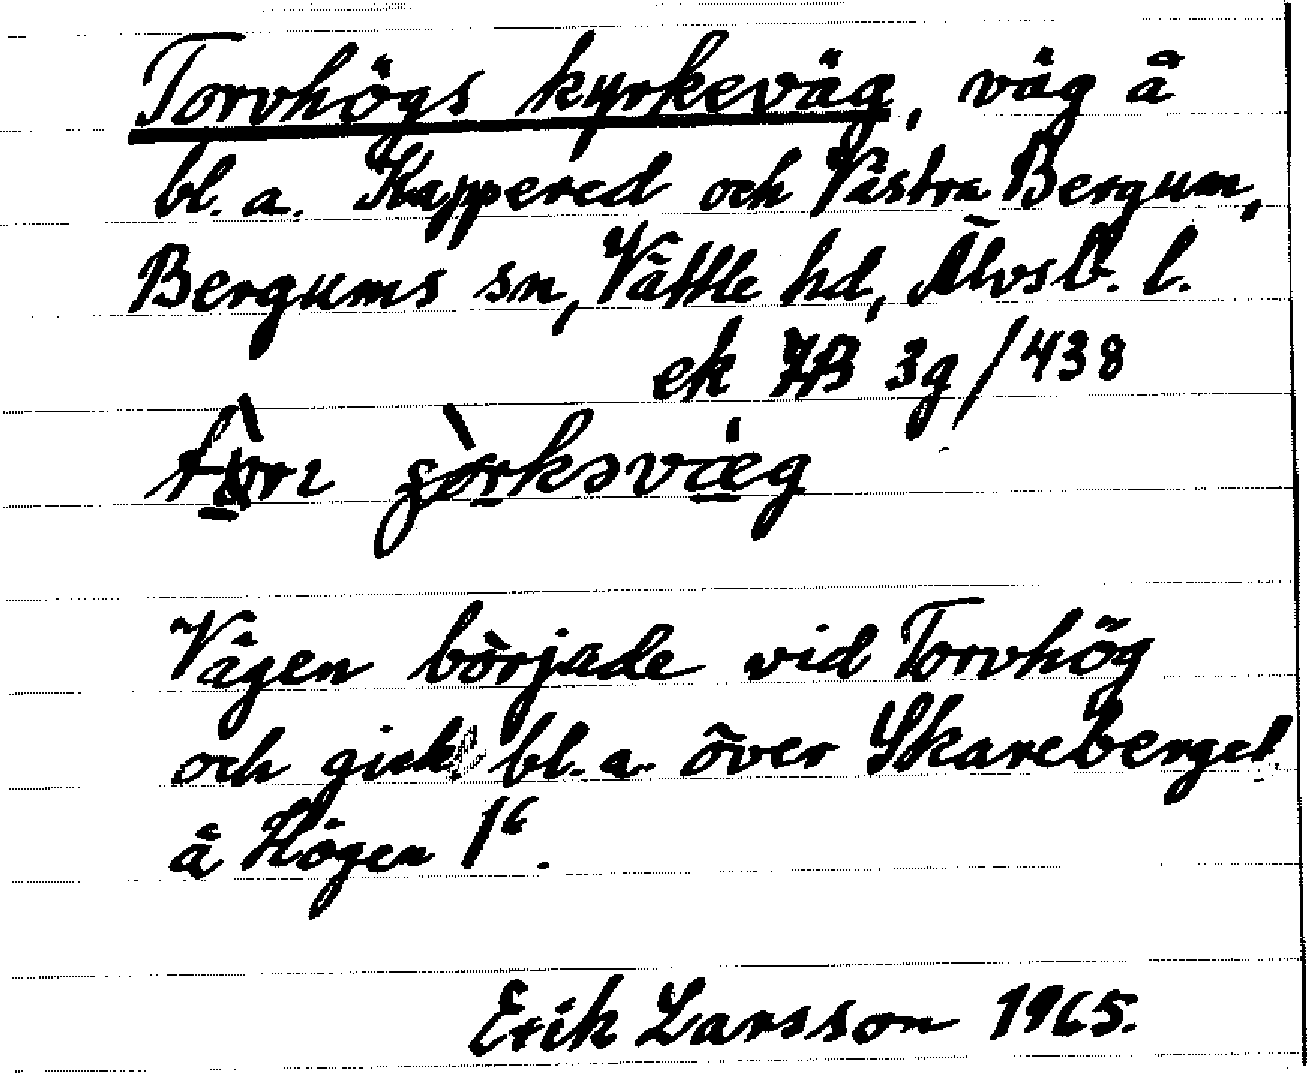 Torvhögs kyrkeväg, väg å
bl. a. Kappered och Västra Bergum,
Bergums sn, Vättle hd, Älvsb. l.
ek 7B 3g/438
Vägen började vid Torvhög
och gick bl. a. över Skareberget
å Högen 1⁶.
Erik Larsson 1965.